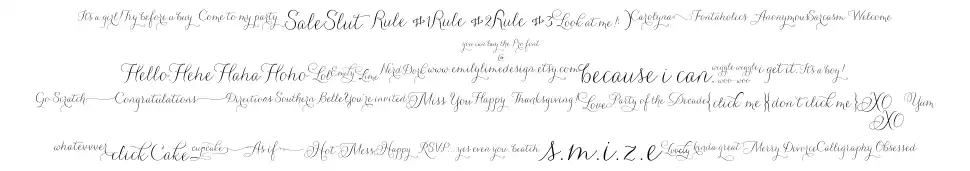 It's a girl! Try before a buy Come to my party Sale Slut Rule #1 Rule #2 Rule #3 Look at me! :) Carolyna Fontaholics Anonymous Sarcasm Welcome
you can buy the Pro font
Hello Hehe Haha Hoho LoL Emily Lime Nerd Dork www.emilylimedesign.etsy.com because i can. wiggle wiggle i get it. It's a boy!
woo-woo
Go Scratch Congratulations Directions Southern Belle You're invited Miss You Happy Thanksgiving! Love Party of the Decade {click me }{ don't click me } XO Yum
XO
whatevver click Cake cupcake As if Hot Mess Happy RSVP...yes even you, beatch s.m.i.z.e Lovely kinda great Merry Divorce Calligraphy Obsessed